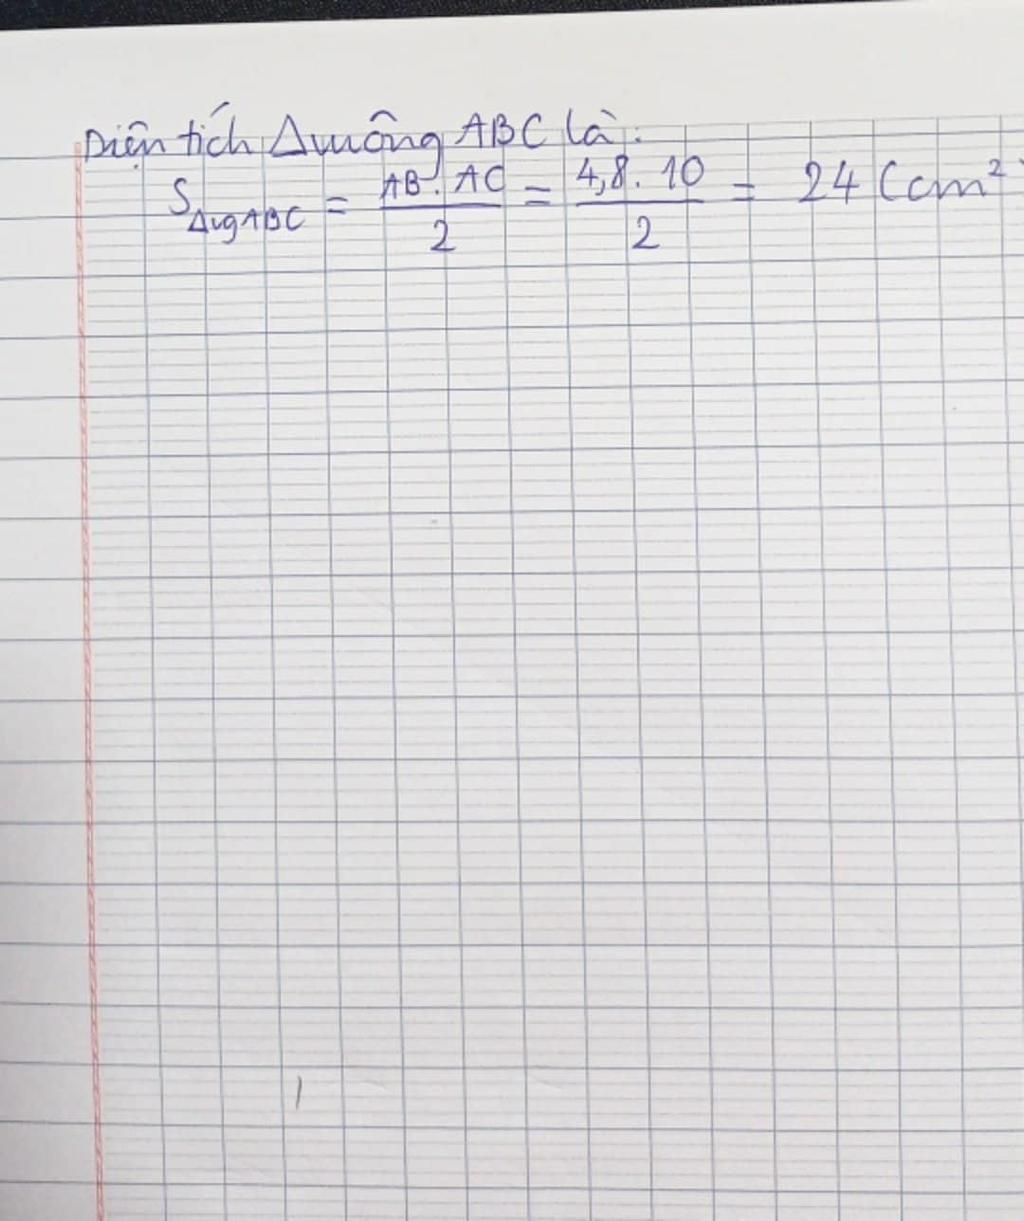 Diện tích Δvuông ABC là:
S ΔvgABC = AB . AC / 2 = 4,8 . 10 / 2 = 24 (cm²)